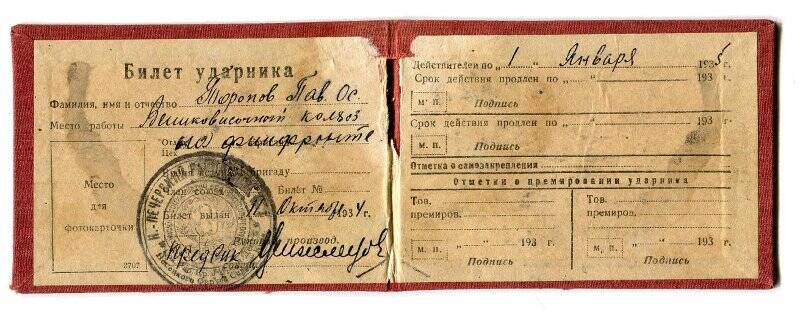 Билет ударника
Фамилия, имя и отчество Торопов Пав. Ос.
Место работы Великовисочный колхоз
на финфронте
Цех
бригаду
Член союза Билет №
Билет выдан „11“ Октября 1934 г.
производ.
Предрик
Место
для
фотокарточки
2707
Н.-ПЕЧОРСК
Действителен по „1“ Января 1935 г.
Срок действия продлен по „ “ 193 г.
м. п. Подпись
Срок действия продлен по „ “ 193 г.
м. п. Подпись
Отметка о самозакреплении
Отметки о премировании ударника
Тов.
премиров.
„ “ 193 г.
м. п.
Подпись
Тов.
премиров.
„ “ 193 г.
м. п.
Подпись